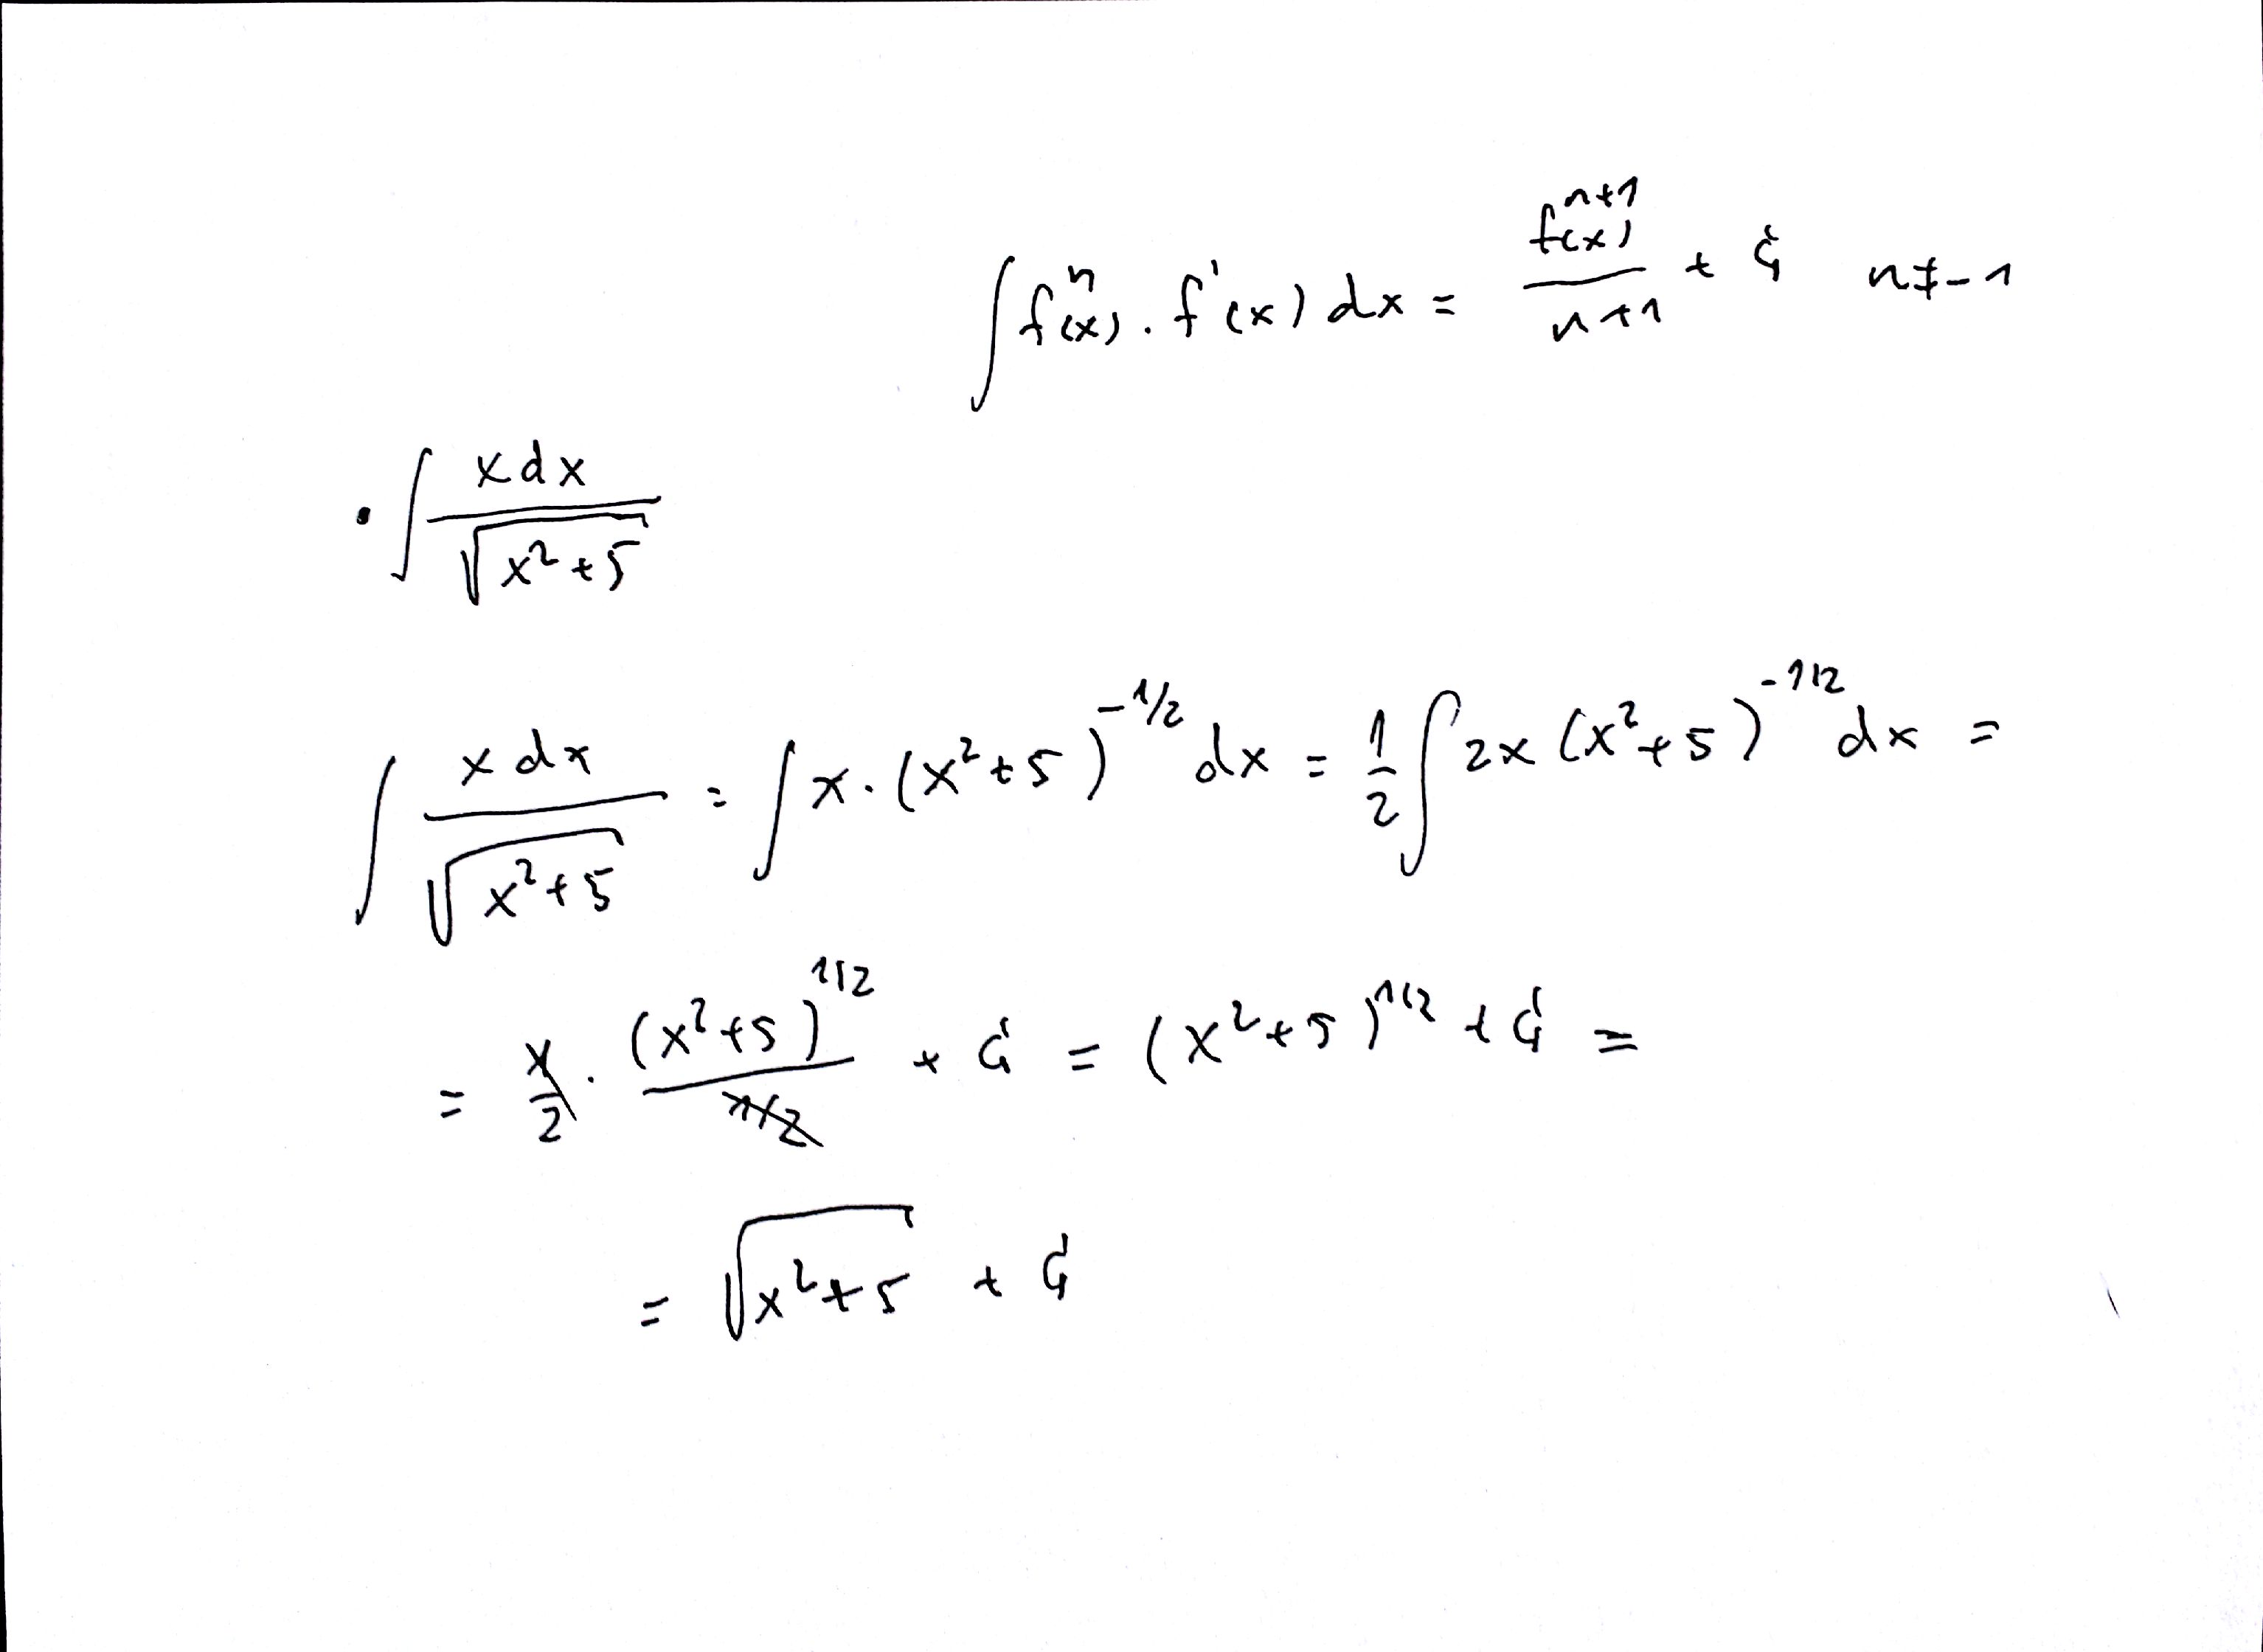 ∫ fⁿ(x) · f'(x) dx = fⁿ⁺¹(x) / (n+1) + C n ≠ -1
• ∫ x dx / √(x² + 5)
∫ x dx / √(x² + 5) = ∫ x · (x² + 5)^(-1/2) dx = 1/2 ∫ 2x (x² + 5)^(-1/2) dx =
= 1/2 · (x² + 5)^(1/2) / (1/2) + C = (x² + 5)^(1/2) + C =
= √(x² + 5) + C